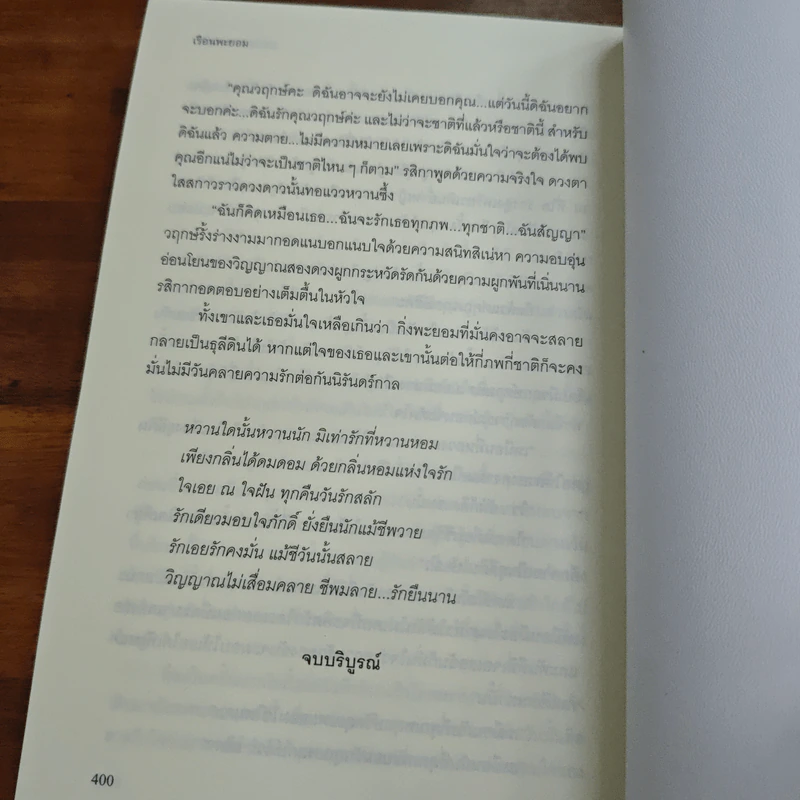 เรือนพะยอม
"คุณวฤกษ์คะ ดิฉันอาจจะยังไม่เคยบอกคุณ...แต่วันนี้ดิฉันอยาก
จะบอกค่ะ...ดิฉันรักคุณวฤกษ์ค่ะ และไม่ว่าจะชาติที่แล้วหรือชาตินี้ สำหรับ
ดิฉันแล้ว ความตาย...ไม่มีความหมายเลยเพราะดิฉันมั่นใจว่าจะต้องได้พบ
คุณอีกแน่ไม่ว่าจะเป็นชาติไหน ๆ ก็ตาม" รสิกาพูดด้วยความจริงใจ ดวงตา
ใสสกาวราวดวงดาวนั้นทอแววหวานซึ้ง
"ฉันก็คิดเหมือนเธอ...ฉันจะรักเธอทุกภพ...ทุกชาติ...ฉันสัญญา"
วฤกษ์รั้งร่างงามมากอดแนบอกแนบใจด้วยความสนิทสิเน่หา ความอบอุ่น
อ่อนโยนของวิญญาณสองดวงผูกกระหวัดรัดกันด้วยความผูกพันที่เนิ่นนาน
รสิกากอดตอบอย่างเต็มตื้นในหัวใจ
ทั้งเขาและเธอมั่นใจเหลือเกินว่า กิ่งพะยอมที่มั่นคงอาจจะสลาย
กลายเป็นธุลีดินได้ หากแต่ใจของเธอและเขานั้นต่อให้กี่ภพกี่ชาติก็จะคง
มั่นไม่มีวันคลายความรักต่อกันนิรันดร์กาล
หวานใดนั้นหวานนัก มิเท่ารักที่หวานหอม
เพียงกลิ่นได้ดมดอม ด้วยกลิ่นหอมแห่งใจรัก
ใจเอย ณ ใจฝัน ทุกคืนวันรักสลัก
รักเดียวมอบใจภักดิ์ ยั่งยืนนักแม้ชีพวาย
รักเอยรักคงมั่น แม้ชีวันนั้นสลาย
วิญญาณไม่เสื่อมคลาย ชีพมลาย...รักยืนนาน
จบบริบูรณ์
400